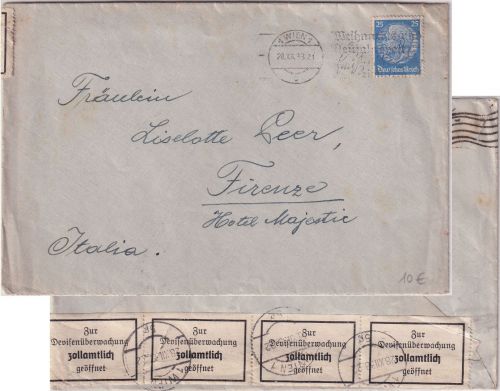 WIEN 1
20.XII.38.21
25 25
Deutsches Reich
Fräulein
Liselotte Geer,
Firenze
Hotel Majestic
Italia.
10 €
Zur
Devisenüberwachung
zollamtlich
geöffnet
Zur
Devisenüberwachung
zollamtlich
geöffnet
Zur
Devisenüberwachung
zollamtlich
geöffnet
Zur
Devisenüberwachung
zollamtlich
geöffnet